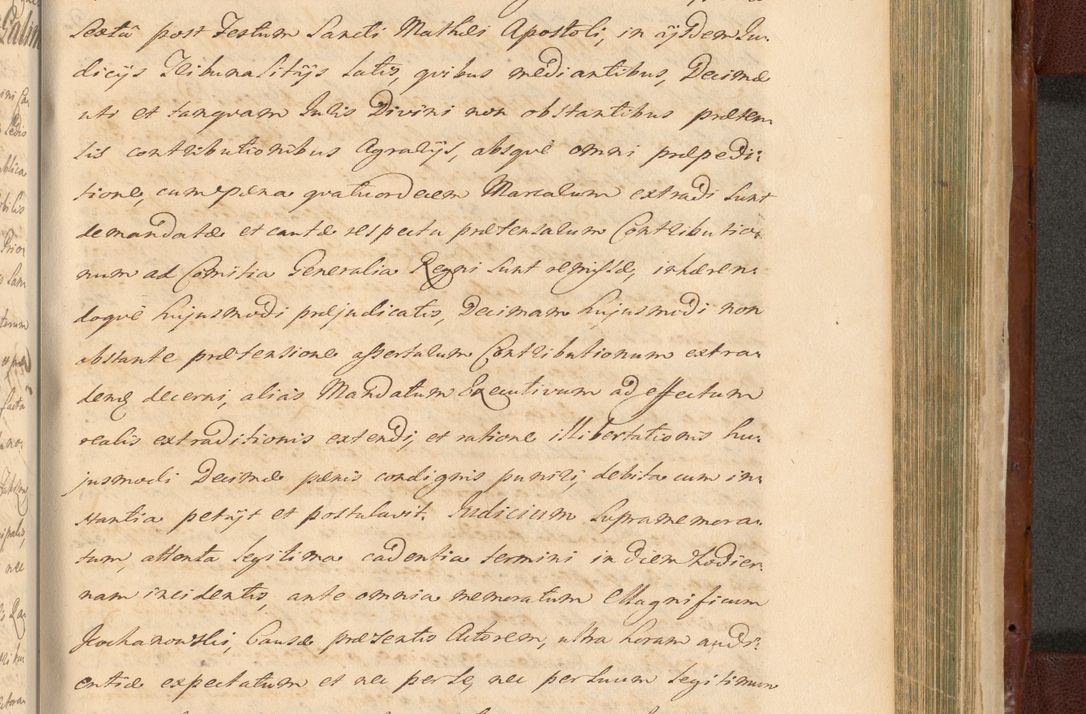 Sextâ post Festum Sancti Mathei Apostoli, in ijsdem Ju-
dicijs Tribunalitijs latis, quibus mediantibus, Decimæ
uti et tanquam Juris Divini non obstantibus præten-
sis contributionibus Agrarijs, absque omni præpedi-
tione, cum pæna quatuordecem Marcarum extradi sunt
demandatæ et tantæ respectu prætensarum Contributio-
num ad Comitia Generalia Regni sunt remissæ, inhæren-
doque hujusmodi præjudicatis, Decimam hujusmodi non
obstante prætensione assertarum Contributionum extra-
dendam decerni, alias Mandatum Executivum ad effectum
realis extraditionis extendi, et ratione illibertationis hu-
jusmodi Decimæ pænis condignis puniri, debita cum in-
stantia petijt et postulavit. Judicium supramemora-
tum, attenta legitima cadentia termini in diem hodier-
nam incidentis, ante omnia memoratum Magnificum
Kochanowski, Causæ præsentis Actorem, ultra horam audi-
entiæ expectatum et nec per se, nec per suum legitimum